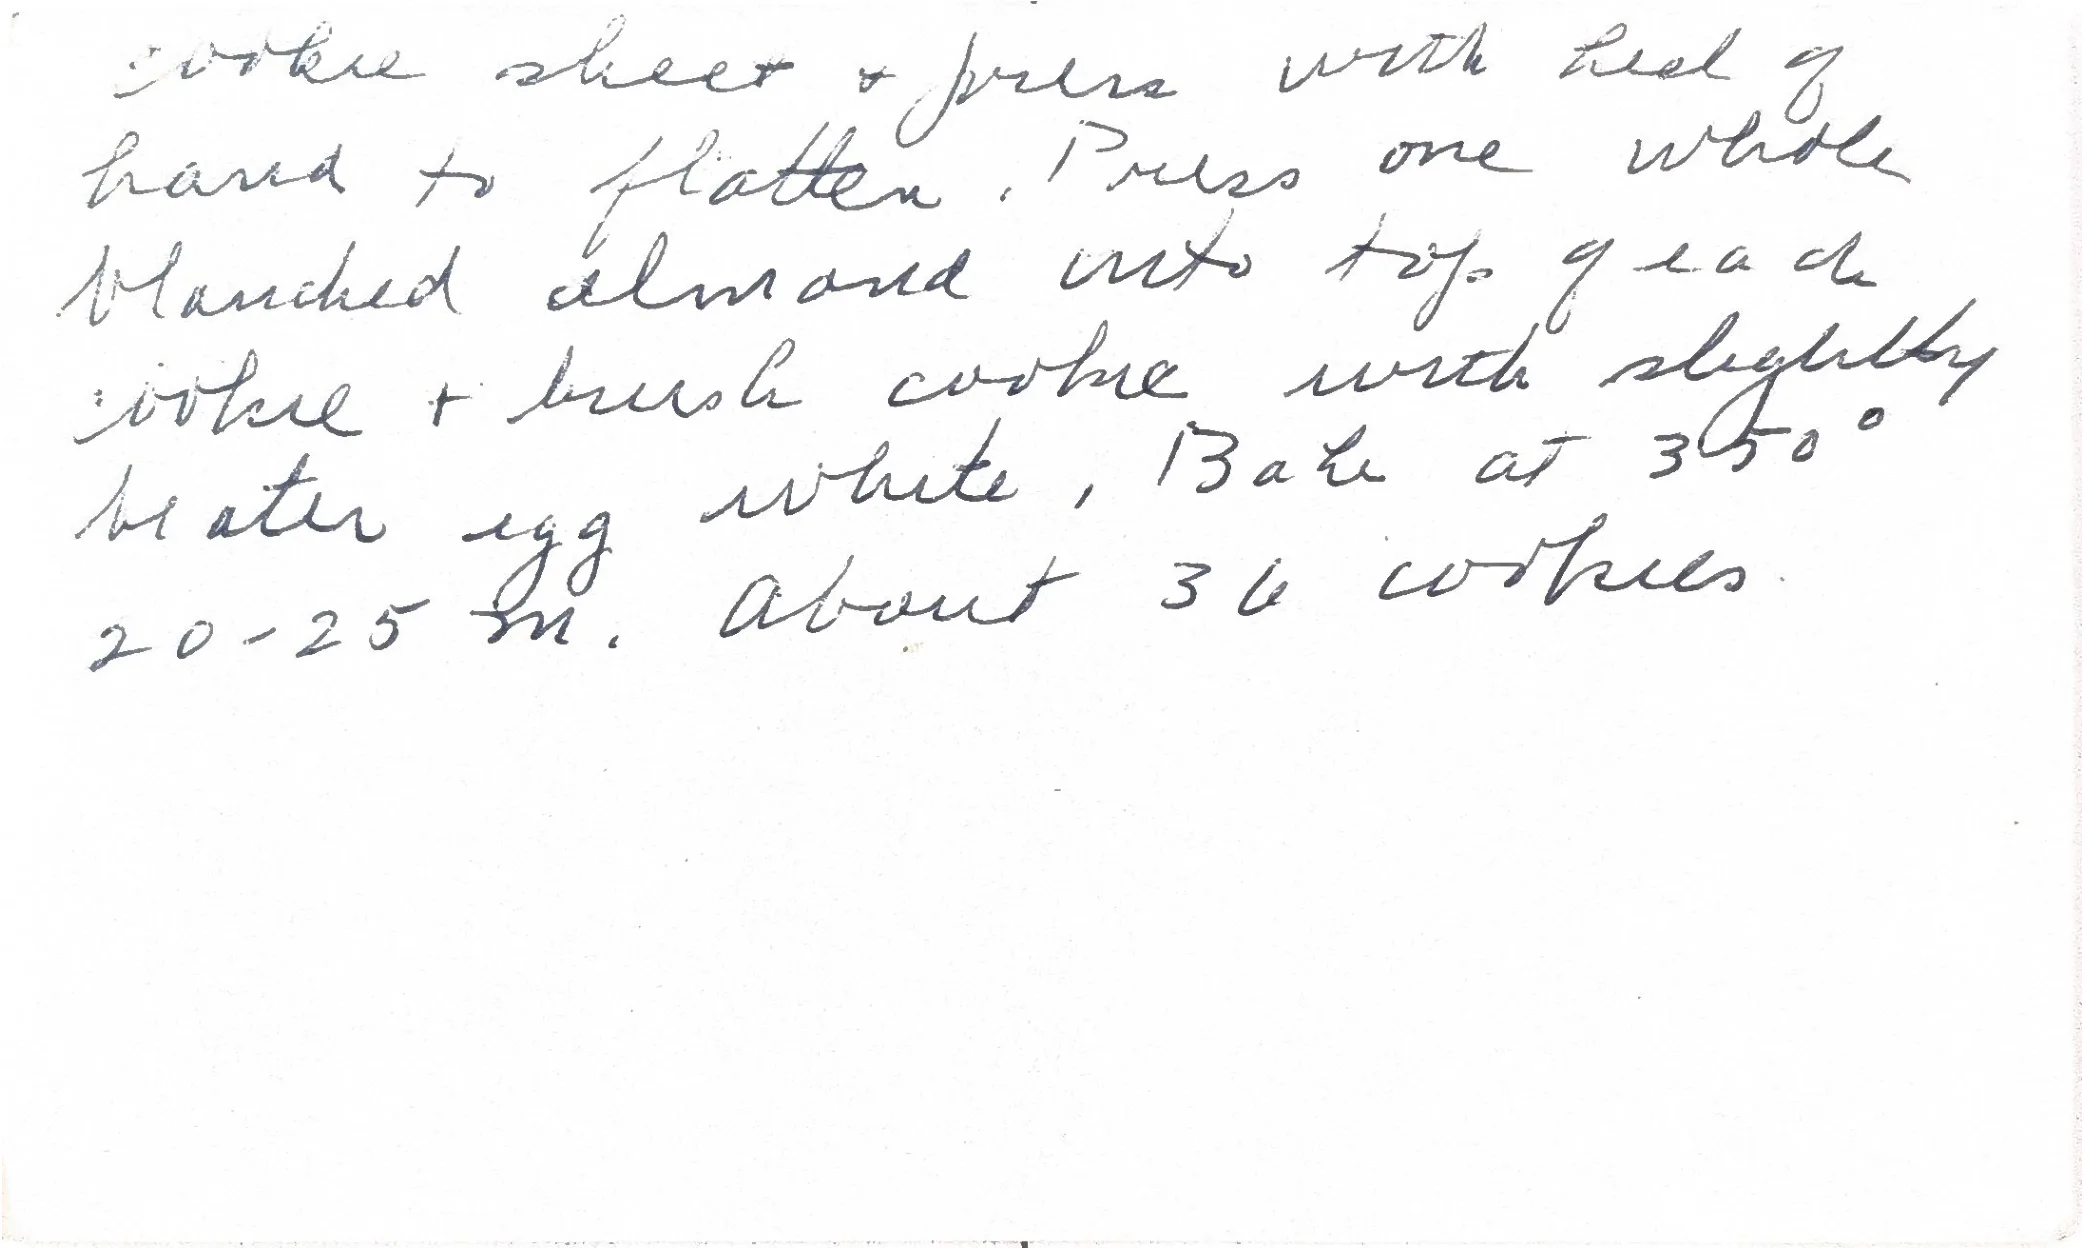 cookie sheet + press with heel of
hand to flatten. Press one whole
blanched almond into top of each
cookie + brush cookie with slightly
beaten egg white, Bake at 350°
20-25 m. About 36 cookies.